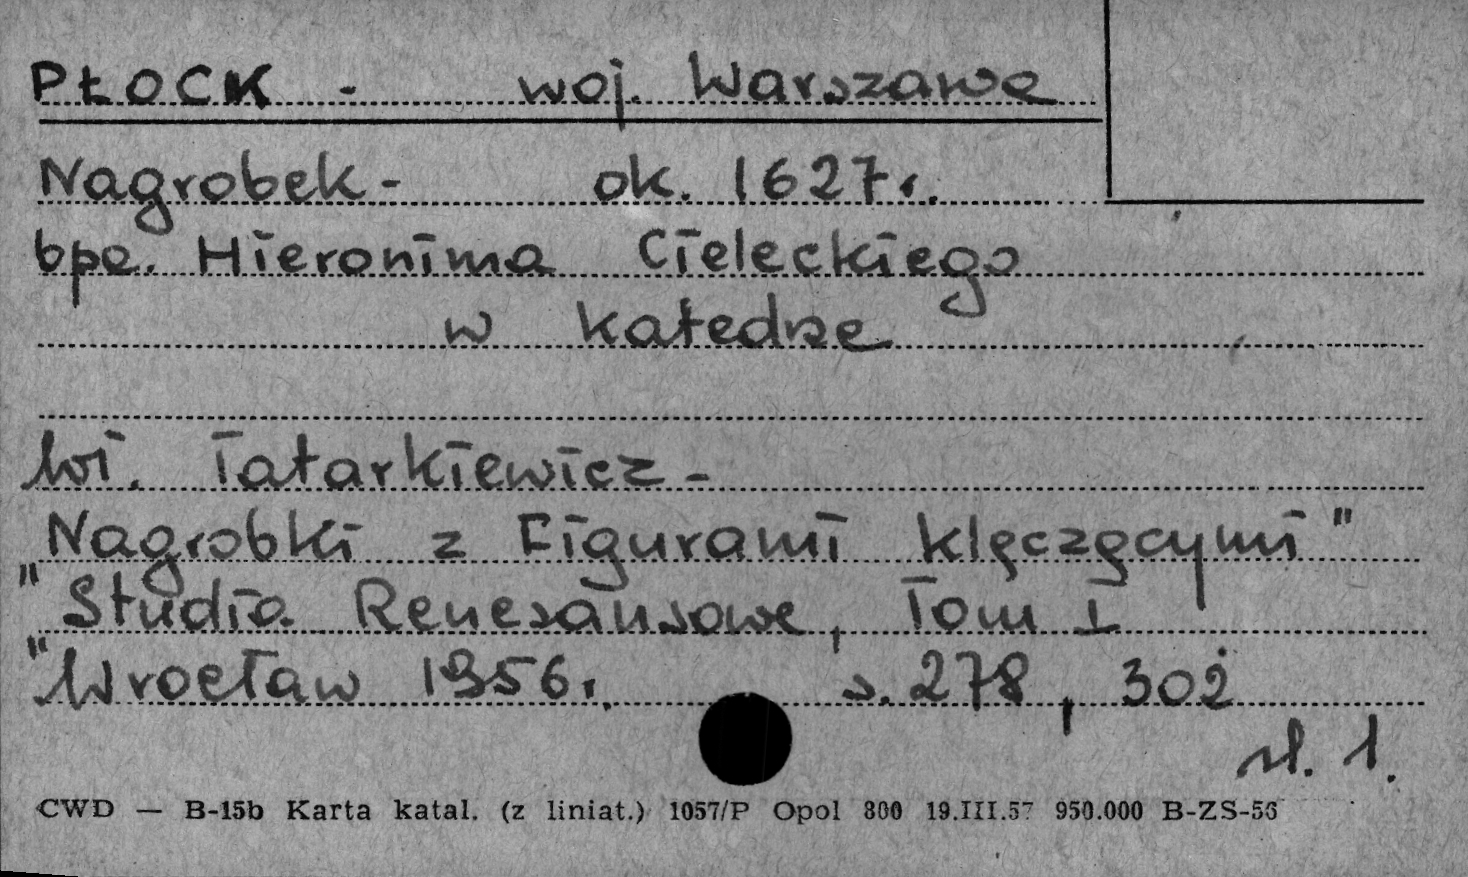 PŁOCK - woj. Warszawa
Nagrobek - ok. 1627 r.
bpa. Hieronima Cieleckiego
w katedrze
Wł. Tatarkiewicz -
Nagrobki z Figurami klęczącymi"
"Studia Renesansowe, Tom I
"Wrocław 1956 r. s. 278, 302
sł. 1.
CWD — B-15b Karta katal. (z liniat.) 1057/P Opol 800 19.III.57 950.000 B-ZS-56